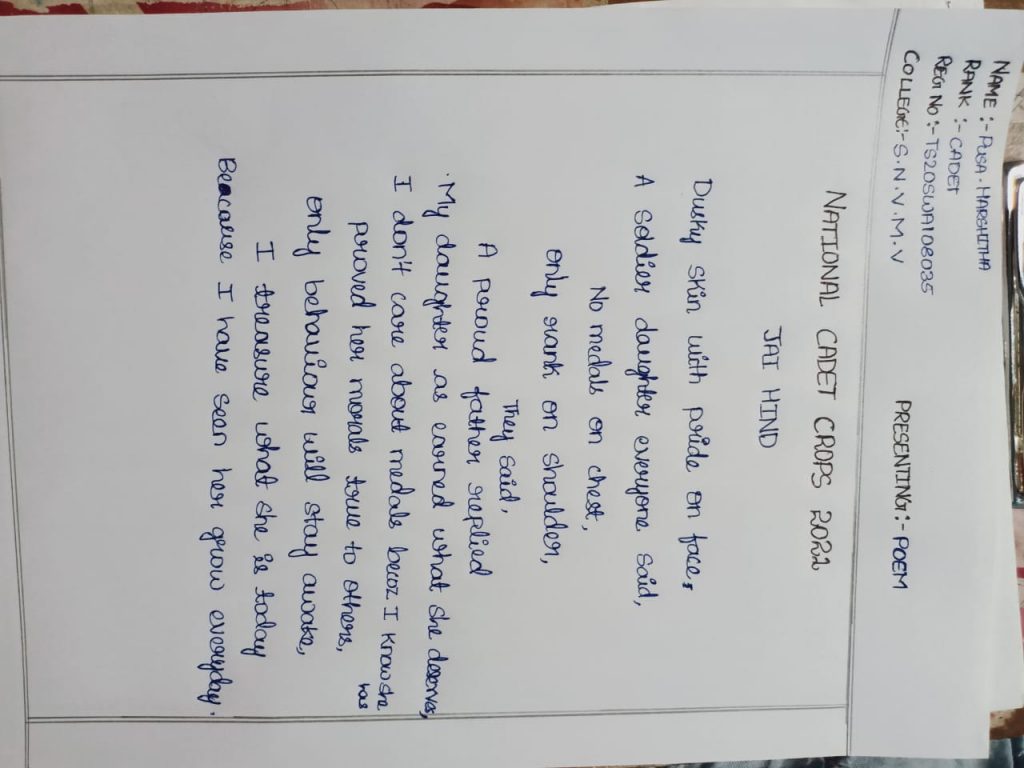 NAME :- PUSA. HARSHITHA
RANK :- CADET
REGI NO :- TS20SWA108035
COLLEGE:- S. N. V. M. V
PRESENTING :- POEM
NATIONAL CADET CROPS 2022
JAI HIND
Dusky skin with pride on face,
A soldier daughter everyone said,
No medals on chest,
only rank on shoulder,
They said,
A proud father replied
My daughter as earned what she deserves,
I don't care about medals becoz I know she has
proved her morals true to others,
only behaviour will stay awake,
I treasure what she is today
Beacause I have sean her grow everyday.